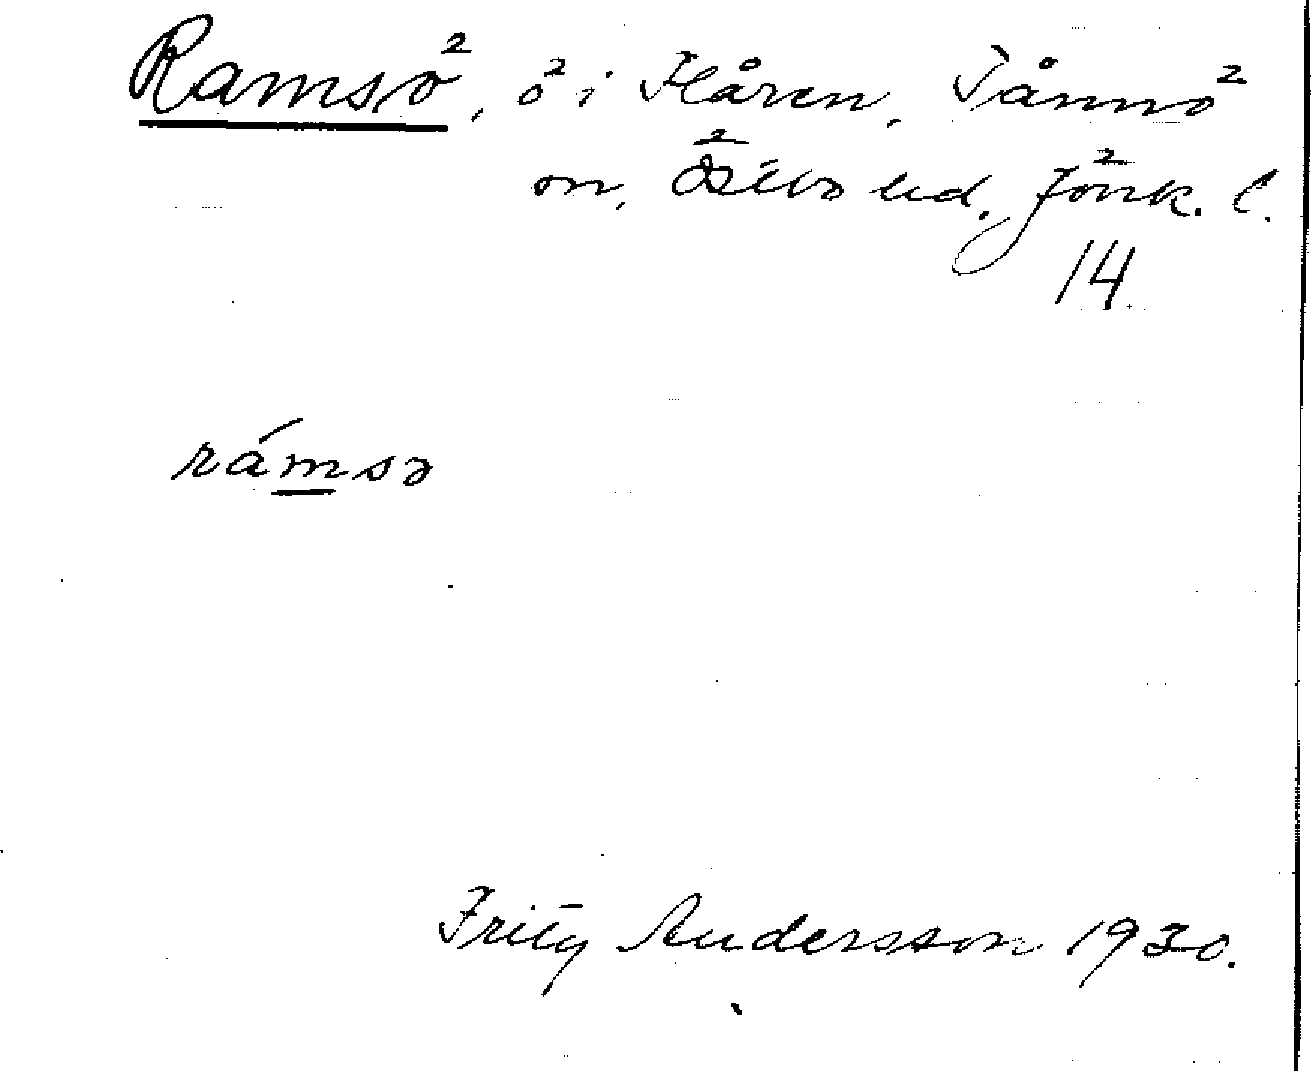 Ramsö, ö i Flåren, Tånnö
sn, Östbo hd. Jönk. l.
14.
rámsə
Fritz Andersson 1930.